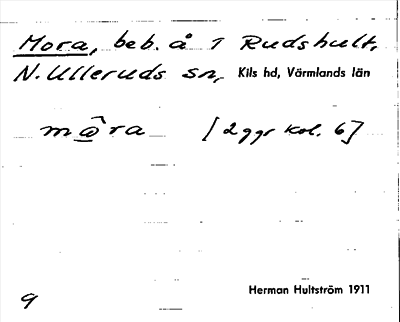 Mora, beb. å 1 Rudshult,
N. Ulleruds sn, Kils hd, Värmlands län
mω̂ra [2 ggr kol. 6]
Herman Hultström 1911
9